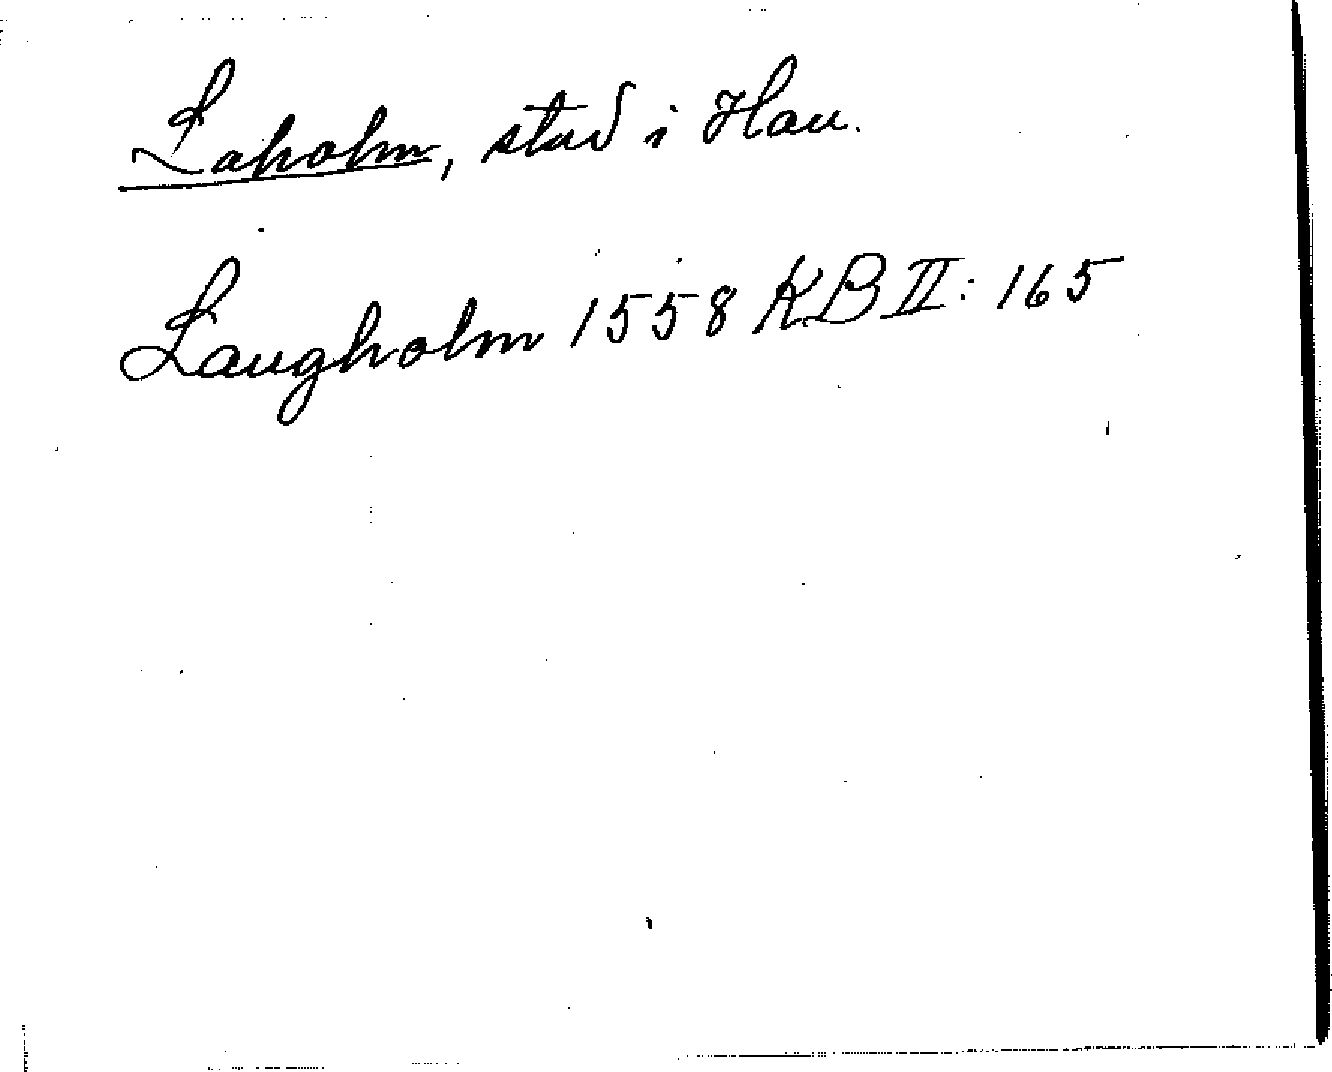 Laholm, stad i Hall.
Laugholm 1558 KB II: 165